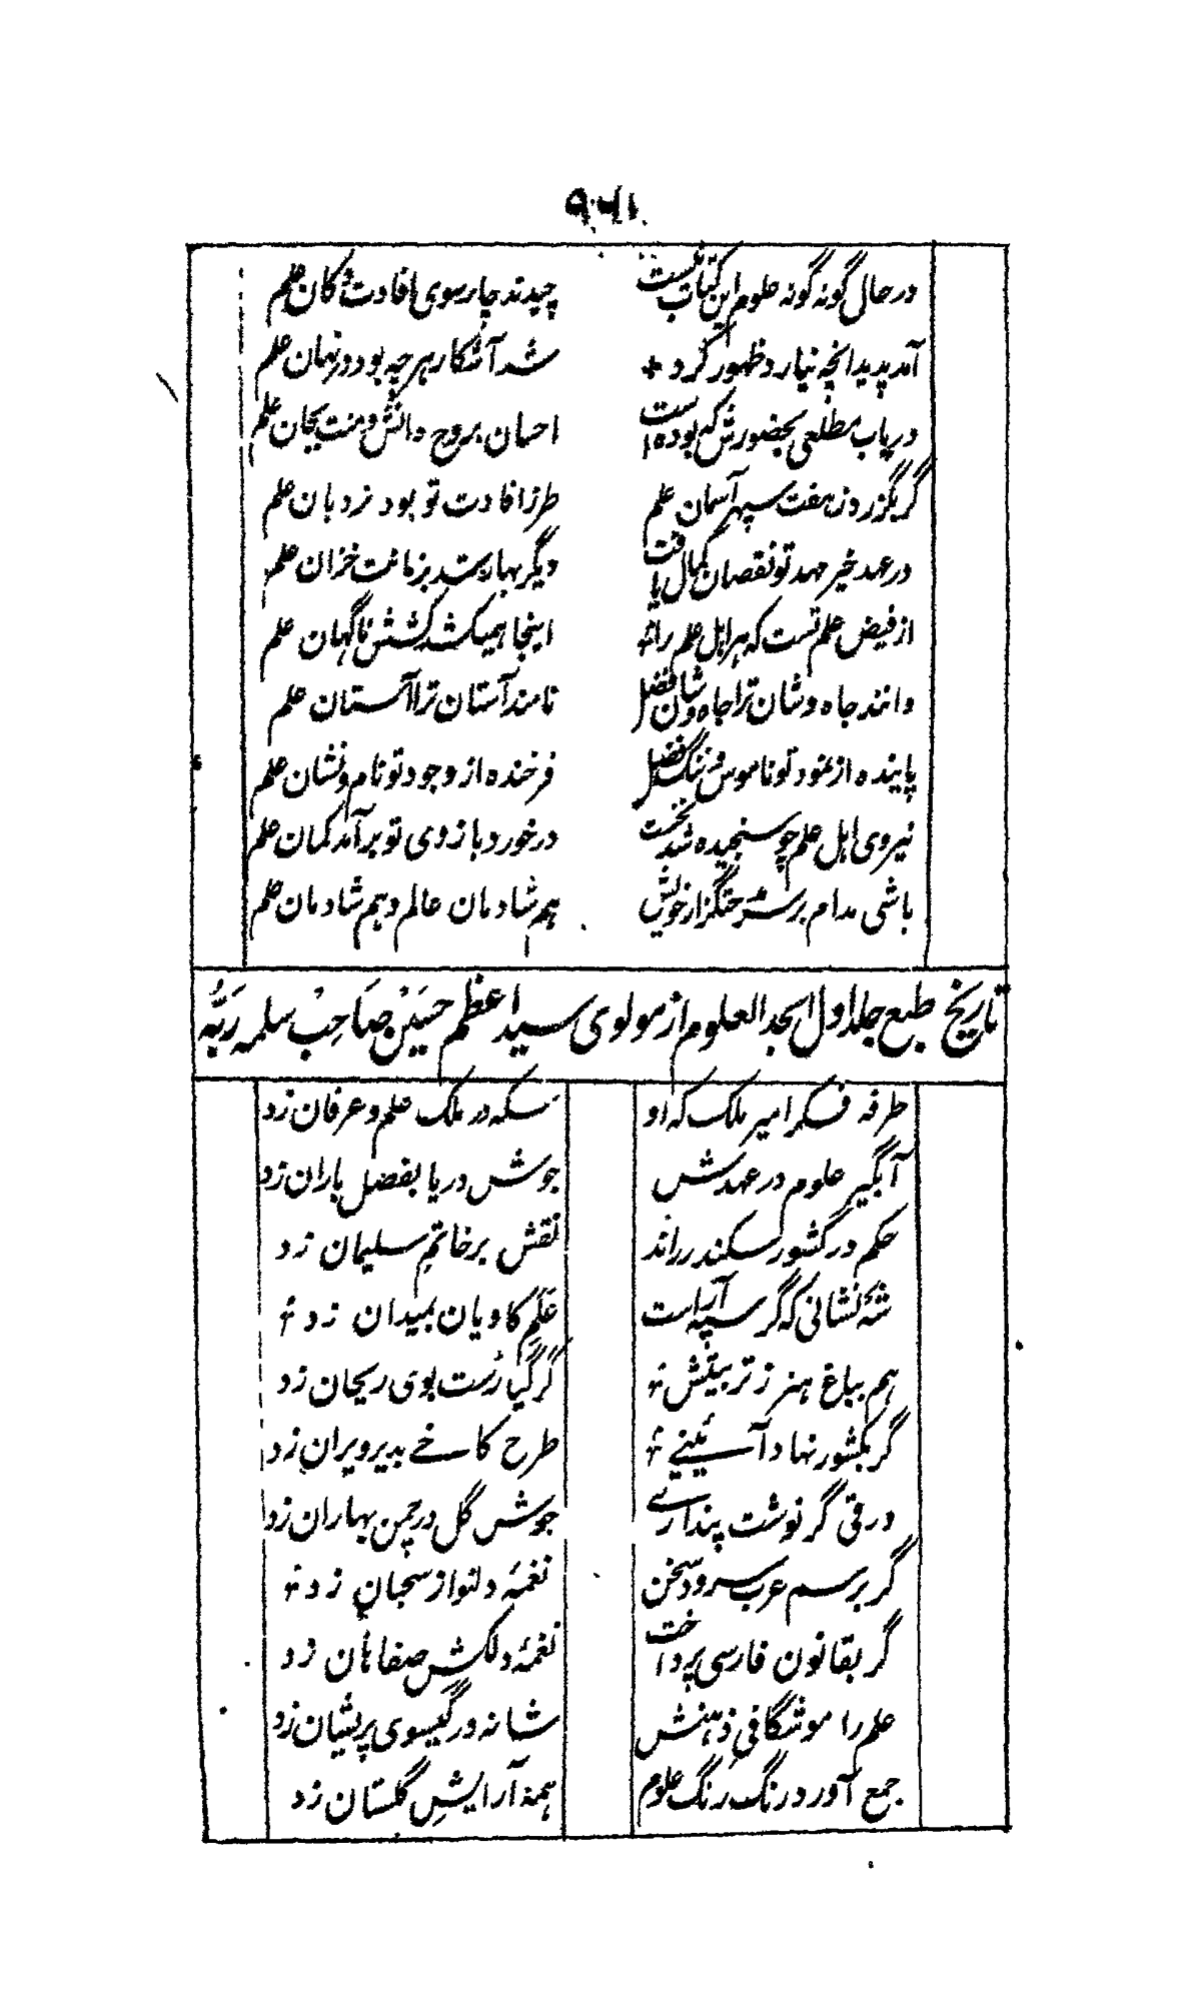 ٩٦١
در حال گونه گونه علوم این کتاب نیست چیدند چارسوی افادت دکان علم
آمد پدید انچه نیارد ظهور کرد شد آشکار هر چه بود در نهان علم
دریاب مطلعی بحضورش که بوده است احسان بروح دانش و منت بجان علم
گر بگزرد ز هفت سپهر آسمان علم طرز افادت تو بود نردبان علم
در عهد خیر مهد تو نقصان کمال یافت دیگر بهار شد بزمانت خزان علم
از فیض علم تست که هر اهل علم را اینجا همیکشد کشش ناگهان علم
دانند جاه و شان ترا جاه و شان فضل نامند آستان ترا آستان علم
پاینده از نمود تو ناموس و ننگ فضل فرخنده از وجود تو نام و نشان علم
نیروی اهل علم چو سنجیده شد نخست درخورد بازوی تو برآمد کمان علم
باشی مدام بر سر حقگزار خویش هم شادمان عالم و هم شادمان علم
تاریخ طبع جلد اول ابجد العلوم از مولوی سید اعظم حسین صاحب سلمه ربه
طرفه فکر امیر ملک که او سکه در ملک علم و عرفان زد
آبگیر علوم در عهدش جوش دریا بفصل باران زد
حکم در کشور سکندر راند نقش بر خاتم سلیمان زد
شه نشانی که گر سپه آراست علم کاویان بمیدان زد
هم بباغ هنر ز تربیتش گر گیا رست بوی ریحان زد
گر بکشور نهاد آئینے طرح کاخے بدیر ویران زد
ورقی گر نوشت پندارے جوش گل در چمن بهاران زد
گر برسم عرب سرود سخن نغمهٔ دلنواز سحبان زد
گر بقانون فارسی پرداخت نغمهٔ دلکش صفاهان زد
علم را موشگافی ذهنش شانه در گیسوی پریشان زد
جمع آورد رنگ رنگ علوم همه آرایش گلستان زد